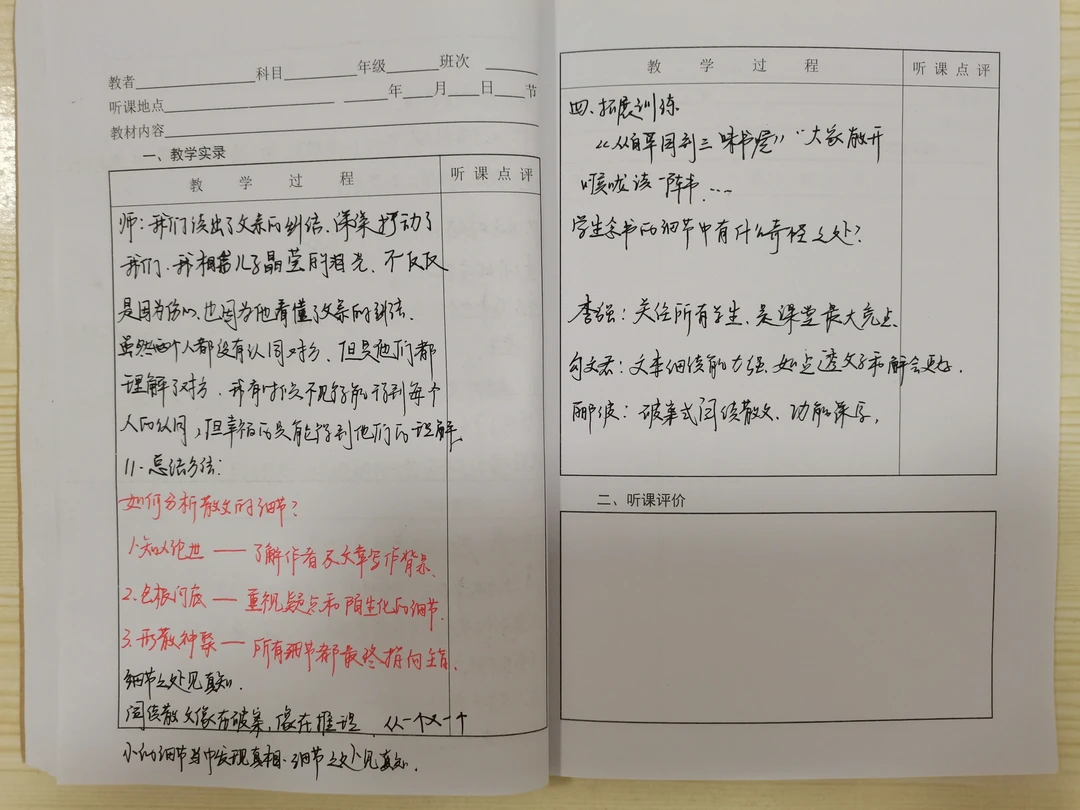 教者 科目 年级 班次
听课地点 年 月 日 节
教材内容
一、教学实录
教 学 过 程 听 课 点 评
师：我们读出了父亲的纠结、深深打动了
我们、我相信儿子晶莹的泪光、不仅仅
是因为伤心、也因为他看懂了父亲的纠结.
虽然两个人都没有认同对方、但是他们都
理解了对方、我有时候不见得能得到每个
人的认同，但幸福的是能得到他们的理解
11.总结方法：
如何分析散文的细节？
1.知人论世 — 了解作者及文章写作背景.
2.刨根问底 — 重视疑点和陌生化的细节.
3.形散神聚 — 所有细节都最终指向主旨.
细节之处见真知.
阅读散文像在破案，像在推理 从一个又一个
小的细节当中发现真相、细节之处见真知.
教 学 过 程 听 课 点 评
四、拓展训练
《从百草园到三味书屋》“大家放开
喉咙读一阵书....
学生念书的细节中有什么奇怪之处？
李强：关注所有学生、是课堂最大亮点.
勾文君：文本细读能力强、如点透父子和解会更好.
郦波：破案式阅读散文、功能深厚.
二、听课评价